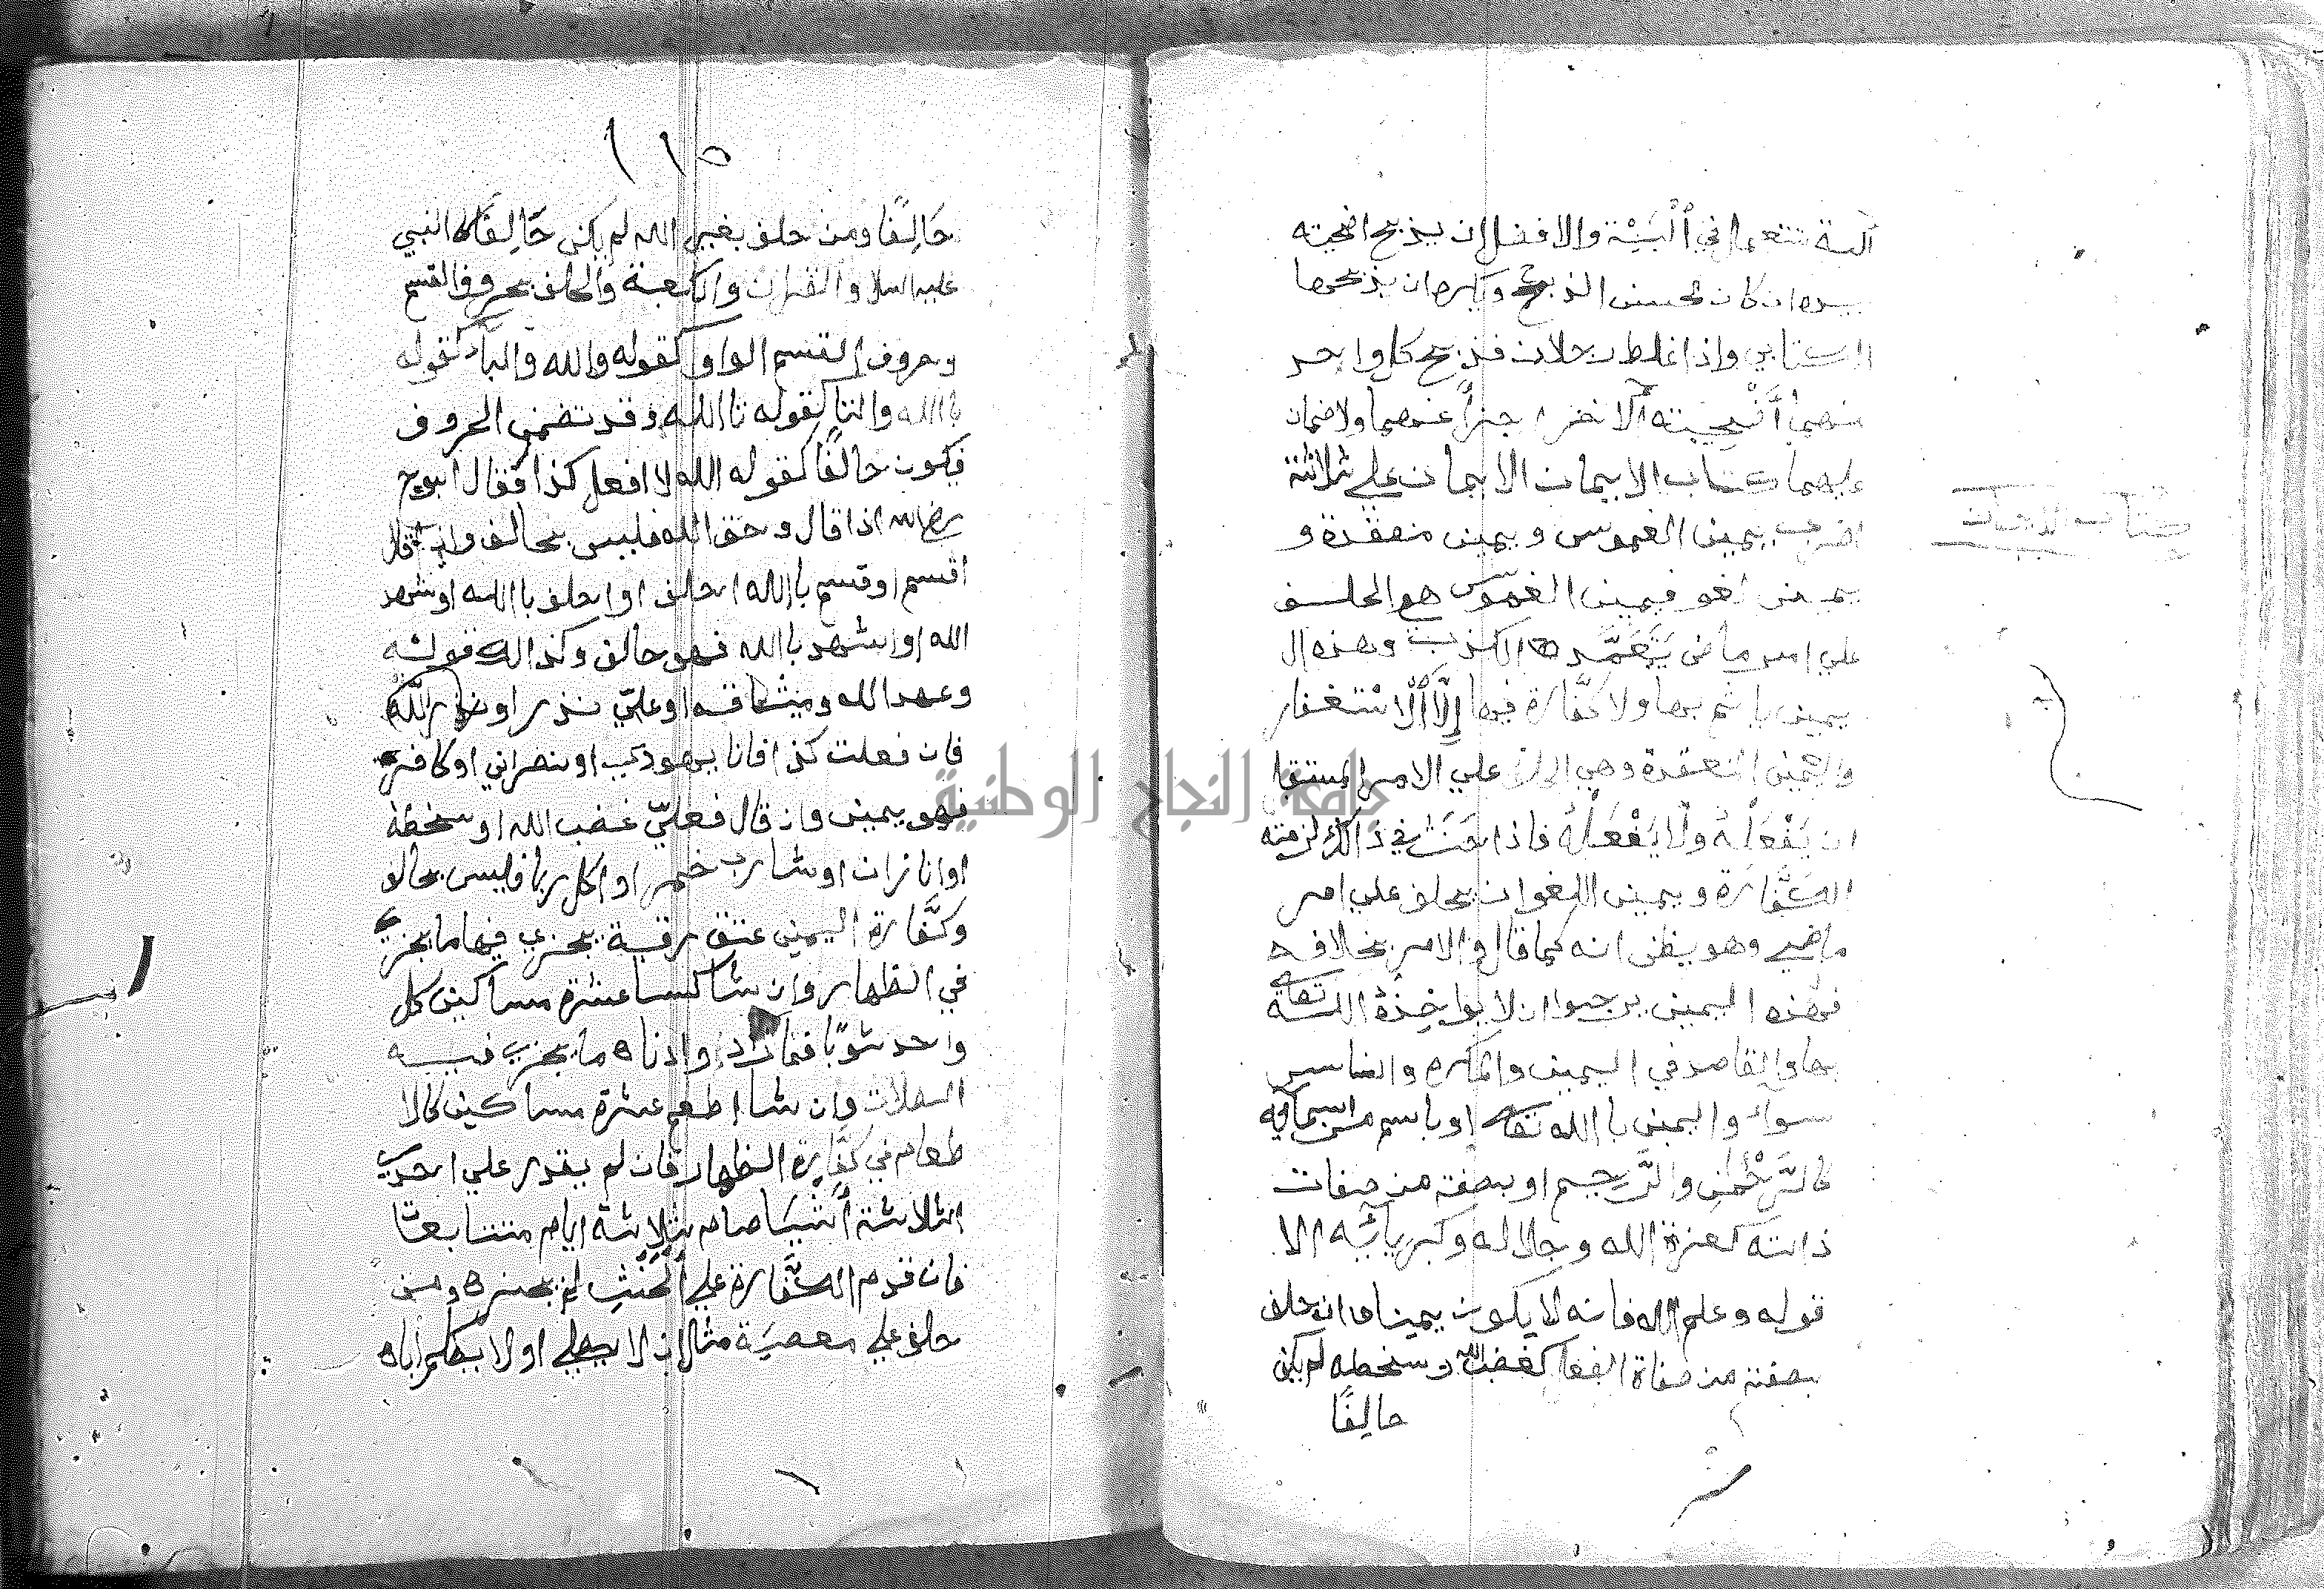 آلة تستعمل في ٱلْبَيْتِ والافضل ان يذبح اضحيته
بيده ان كان يحسن الذبح ويكره ان يذبحها
الكتابي واذا غلط رجلان فذبح كل واحد
منهما أضحيته الاخر اجزأ عنهما ولا ضمان
عليهما كتاب الايمان الايمان علي ثلاثة
كتاب الايمان
اضرب يمين الغموس ويمين منعقدة و
يمين لغو فيمين الغموس هو الحلف
علي امر ماض يَتَعَمَّد الكذب وهذه ال
يمين ياثم بها ولا كفَّارة فيها إلَّا ٱلاسْتغفار
واليمين المنعقدة وهي الحلف علي الامر المستقبل
ان يَفْعَلَهُ ولَا يَفْعَلْهُ فاذا حَنَثَ في ذالك لزمته
الكفَّارَة ويمين اللغو ان يحلف علي امر
ماضي وهو يظن انه كما قال والامر بخلافه
فهذه اليمين يرجوا ان لا يواخِذهُ اللّه تعالى
بها والقاصد في اليمين والمكره والناسي
سواء واليمين باالله تعالى او باسم من اسمآئه
كالرَّحْمٰن والرَّحِيم او بصفة من صفات
ذاته كعزة الله وجلاله وكبريآئه الا
قوله وعلم الله فانه لا يكون يمينا وان حلف
بصفة من صفاة الفعل كغضب الله وسخطه لم يكن
حالِفًا
١١٥
حَالِفًا ومن حلف بغير الله لم يكن حَالِفًا كالنبي
عليه السلا والقران والكعبة والحلف بحروف القسم
وحروف القسم الواو كقوله والله والباء كقوله
باالله والتا كقوله تاالله وقد تضمر الحروف
فيكون حالفًا كقوله الله لا افعل كذا فقال ابو ح
رضي الله اذا قال وحق الله فليس بحالف واذا قال
اقسم او قسم باالله احلف او احلف باالله او اشهد
الله او اشهد باالله فهو حالف وكذالك قوله
وعهد الله وميثاقه او عليّ نذر او نذر اللّه
فان فعلت كذا فانا يهودي او نصراني او كافر
فهو يمين وان قال فعليّ غضب الله او سخطه
او انا زان او شارب خمر او اكل ربا فليس بحالف
وكفَّارة اليمين عتق رقبة يجزي فيها ما يجزي
في الظهار وان شا كسا عشرة مساكين كل
واحد ثوبًا فما زاد وادناه ما يجزي فيه
الصلات وان شا اطعم عشرة مساكين كالا
طعام في كفَّارة الظهار فان لم يقدر علي احدي
الثلاثة أشْيَا صام ثلاثة ايام متتابعات
فان قدم الكفَّارة علي ٱلحِنْثِ لم يجزه ومن
حلف علي معصية مثل ان لا يصلي او لا يكلم اباه
جامعة النجاح الوطنية